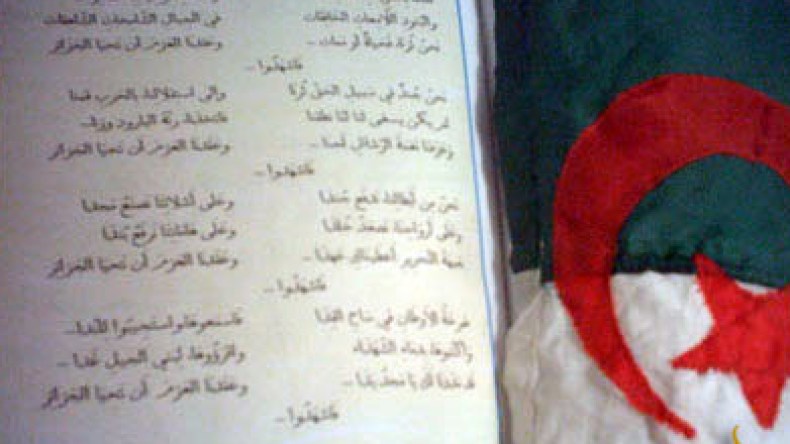 والبنود اللامعات الخافقات في الجبال الشامخات الشاهقات
نحن ثرنا فحياة أو ممات... وعقدنا العزم أن تحيا الجزائر
فاشهدوا...
نحن جند في سبيل الحق ثرنا وإلى استقلالنا بالحرب قمنا
لم يكن يصغى لنا لما نطقنا فاتخذنا رنة البارود وزنا..
وعزفنا نغمة الرشاش لحنا.. وعقدنا العزم أن تحيا الجزائر
فاشهدوا...
نحن من أبطالنا ندفع جندا وعلى أشلائنا نصنع مجدا
وعلى أرواحنا نصعد خلدا وعلى هاماتنا نرفع بندا
جبهة التحرير أعطيناك عهدا.. وعقدنا العزم أن تحيا الجزائر
فاشهدوا...
صرخة الأوطان في ساح الفدا فاسمعوها واستجيبوا للندا...
واكتبوها بدماء الشهداء واقرؤوها لبني الجيل غدا...
قد مددنا لك يا مجد يدا... وعقدنا العزم أن تحيا الجزائر
فاشهدوا...